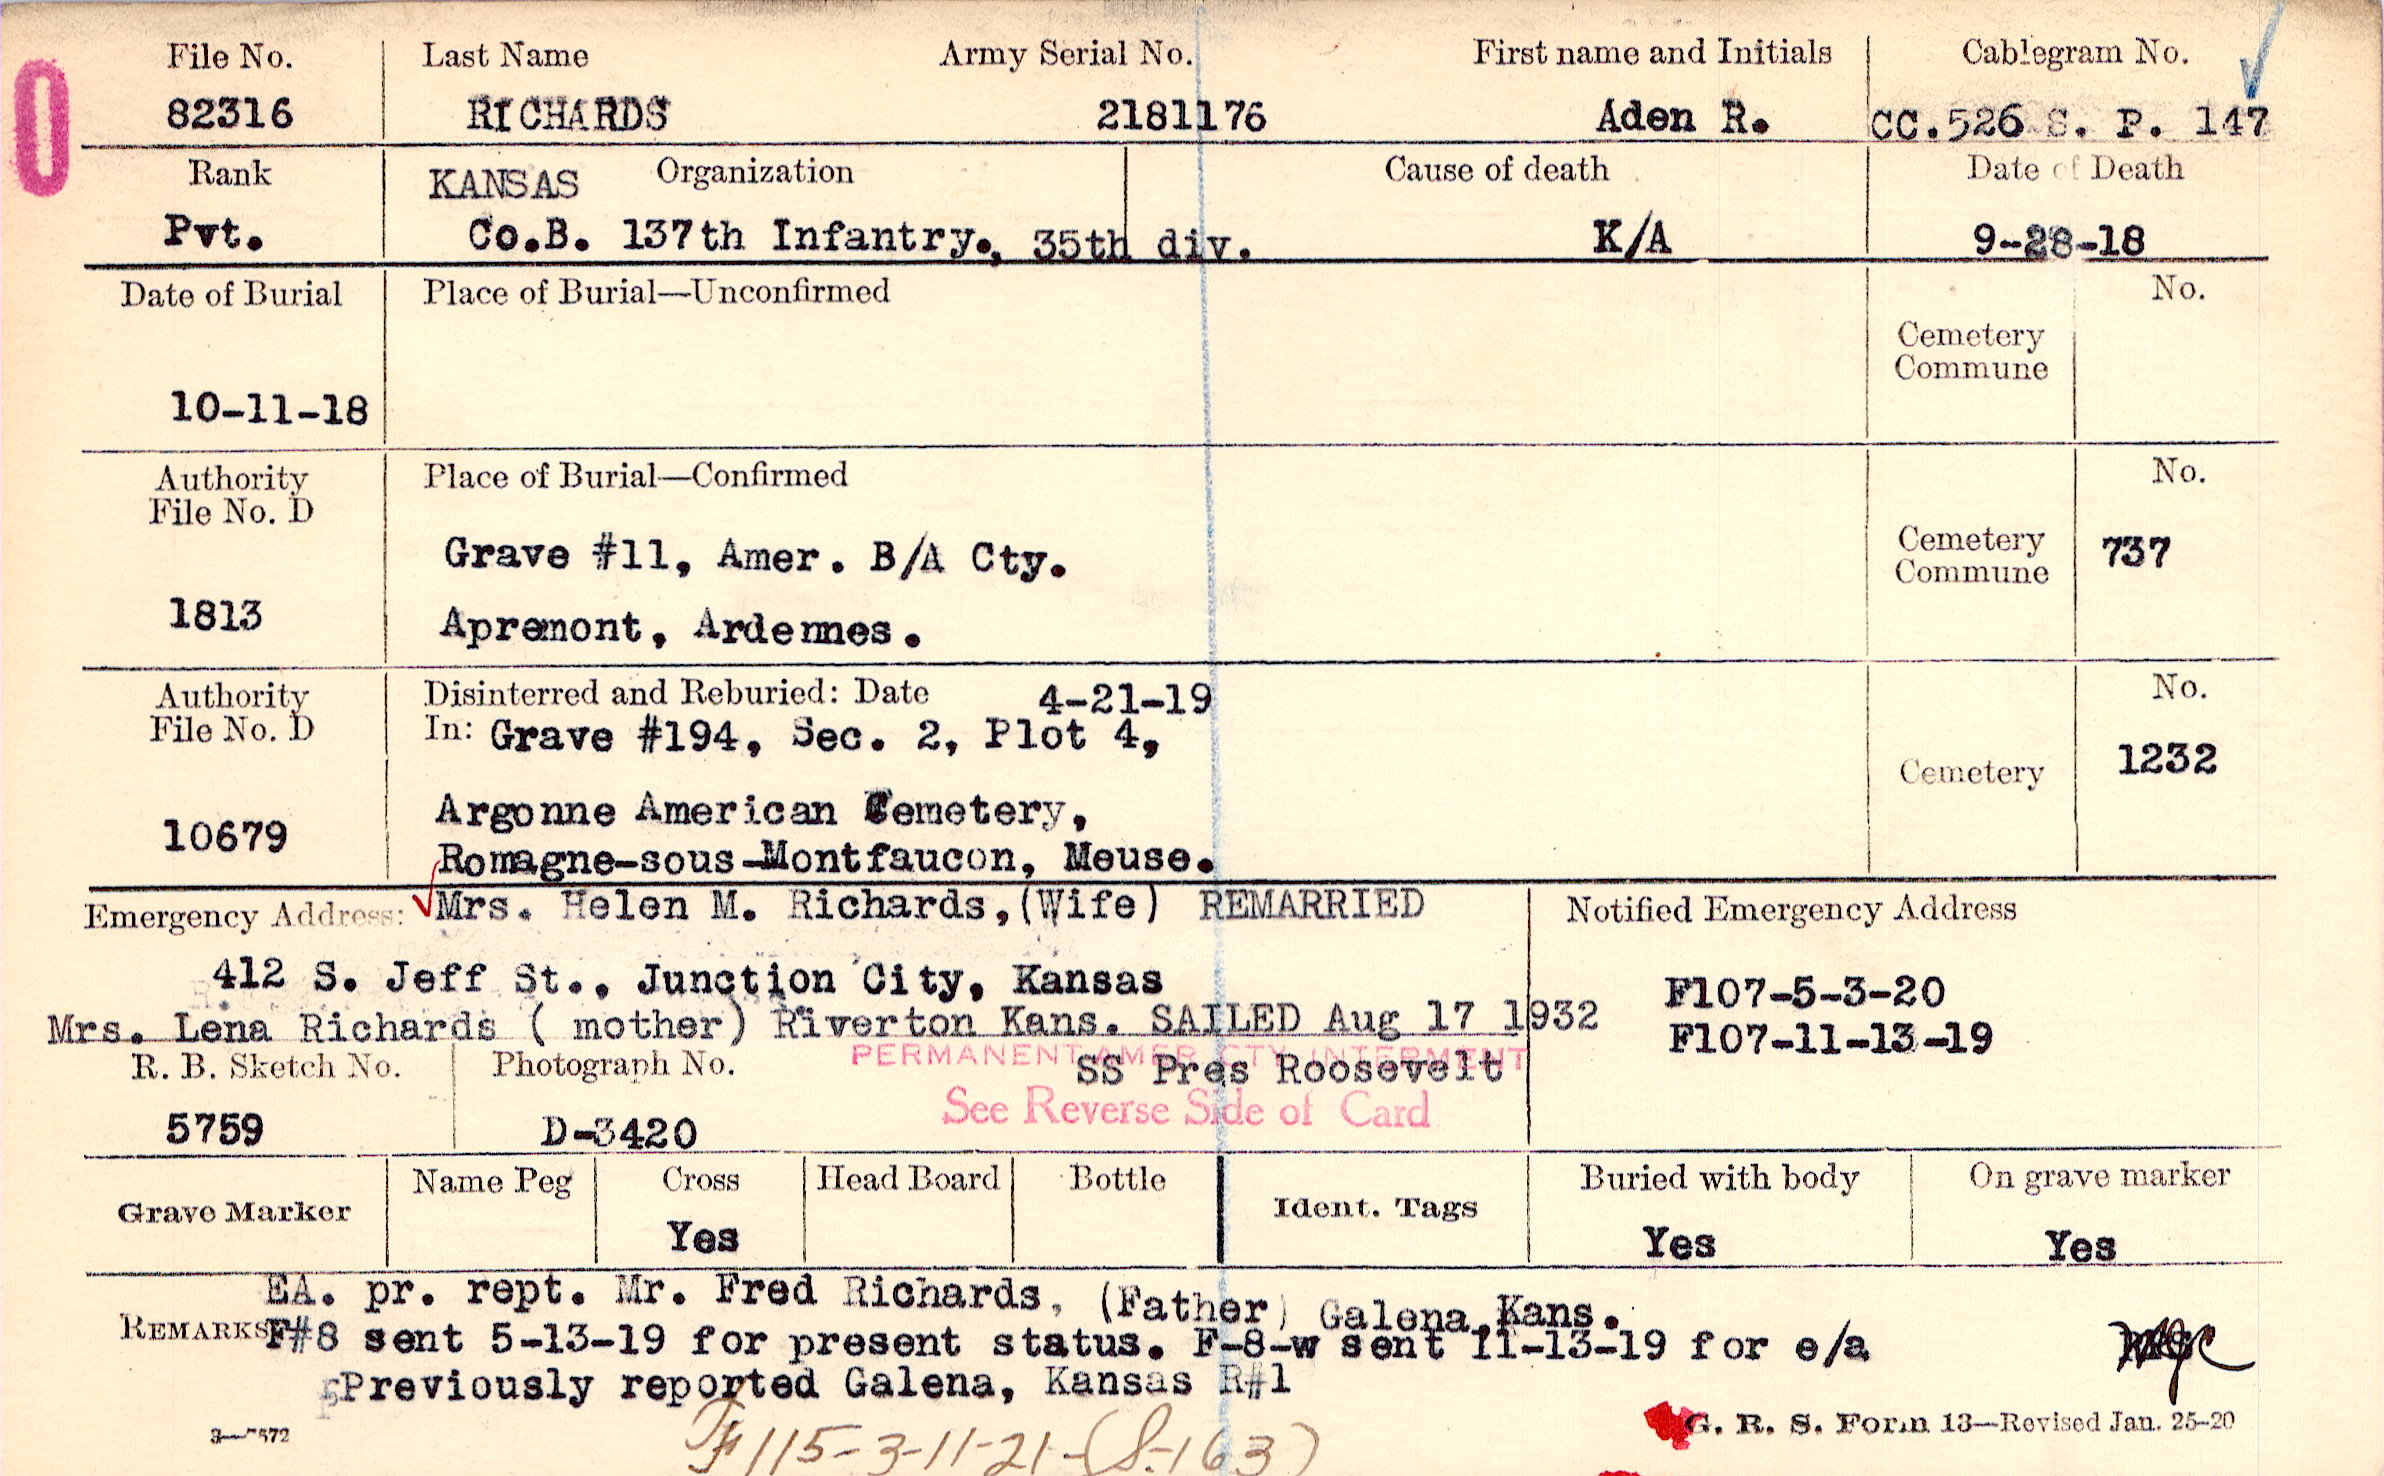 0
File No. Last Name Army Serial No. First name and Initials Cablegram No.
82316 RICHARDS 2181176 Aden R. CC.526 S. P. 147
Rank KANSAS Organization Cause of death Date of Death
Pvt. Co.B. 137th Infantry., 35th div. K/A 9-28-18
Date of Burial Place of Burial—Unconfirmed No.
Cemetery
Commune
10-11-18
Authority Place of Burial—Confirmed No.
File No. D
Grave #11, Amer. B/A Cty. Cemetery 737
Commune
1813 Apremont, Ardennes.
Authority Disinterred and Reburied: Date 4-21-19 No.
File No. D In: Grave #194, Sec. 2, Plot 4,
Cemetery 1232
10679 Argonne American Cemetery,
Romagne-sous-Montfaucon, Meuse.
Emergency Address: Mrs. Helen M. Richards,(Wife) REMARRIED Notified Emergency Address
412 S. Jeff St., Junction City, Kansas F107-5-3-20
Mrs. Lena Richards ( mother) Riverton Kans. SAILED Aug 17 1932 F107-11-13-19
PERMANENT AMER CTY INTERMENT
R. B. Sketch No. Photograph No. SS Pres Roosevelt
See Reverse Side of Card
5759 D-3420
Grave Marker Name Peg Cross Head Board Bottle Ident. Tags Buried with body On grave marker
Yes Yes Yes
EA. pr. rept. Mr. Fred Richards, (Father) Galena,Kans.
REMARKS F#8 sent 5-13-19 for present status. F-8-w sent 11-13-19 for e/a
Previously reported Galena, Kansas R#1
G. R. S. Form 13—Revised Jan. 25-20
F115-3-11-21-(S-163)